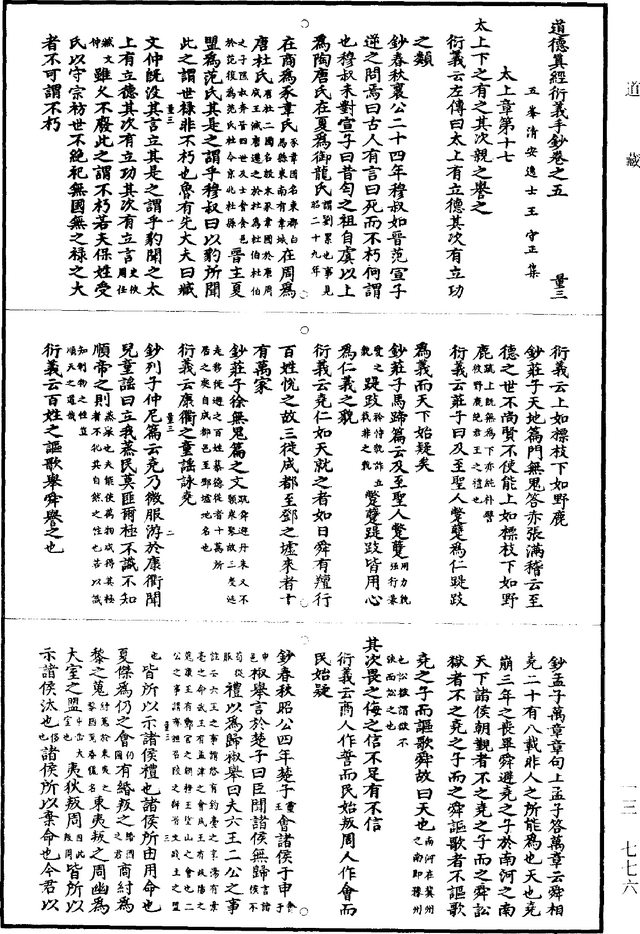 道藏
一三 七七六
道德真經衍義手鈔卷之五
五峯清安逸士王守正集
量三
太上章第十七
太上下之有之其次親之譽之
衍義云左傳曰太上有立德其次有立功
之類
鈔春秋襄公二十四年穆叔如晉范宣子
逆之問焉曰古人有言曰死而不朽何謂
也穆叔未對宣子曰昔匄之祖自虞以上
為陶唐氏在夏為御龍氏謂劉累也事見昭二十九年
在商為豕韋氏豕韋國名東郡白馬縣東南有韋城在周為
唐杜氏
晉主夏
盟為范氏其是之謂乎穆叔曰以豹所聞
此之謂世祿非不朽也魯有先大夫曰臧
文仲既沒其言立其是之謂乎豹聞之太
上有立德其次有立功其次有立言
雖久不廢此之謂不朽若夫保姓受
氏以守宗祊世不絕祀無國無之祿之大
者不可謂不朽
衍義云上如標枝下如野鹿
鈔莊子天地篇門無鬼答赤張滿稽云至
德之世不尚賢不使能上如標枝下如野
鹿
衍義云莊子曰及至聖人蹩躠為仁踶跂
為義而天下始疑矣
鈔莊子馬蹄篇云及至聖人蹩躠
踶跂
蹩躠踶跂皆用心
為仁義之貌
衍義云堯仁如天就之者如日舜有羶行
百姓悅之故三徙成都至鄧之墟來者十
有萬家
鈔莊子徐無鬼篇之文
衍義云康衢之童謠詠堯
鈔列子仲尼篇云堯乃微服游於康衢聞
兒童謠曰立我蒸民莫匪爾極不識不知
順帝之則
衍義云百姓之謳歌舉舜譽之也
鈔孟子萬章章句上孟子答萬章云舜相
堯二十有八載非人之所能為也天也堯
崩三年之喪畢舜避堯之子於南河之南
天下諸侯朝覲者不之堯之子而之舜訟
獄者不之堯之子而之舜謳歌者不謳歌
堯之子而謳歌舜故曰天也
其次畏之侮之信不足有不信
衍義云商人作誓而民始叛周人作會而
民始疑
鈔春秋昭公四年楚子靈王會諸侯于申
椒舉言於楚子曰臣聞諸侯無歸
禮以為歸椒舉曰夫六王二公之事
皆所以示諸侯禮也諸侯所由用命也
夏桀為仍之會有緡叛之商紂為
黎之蒐東夷叛之周幽為
大室之盟夷狄叛周皆所以
示諸侯汰也諸侯所以棄命也今君以